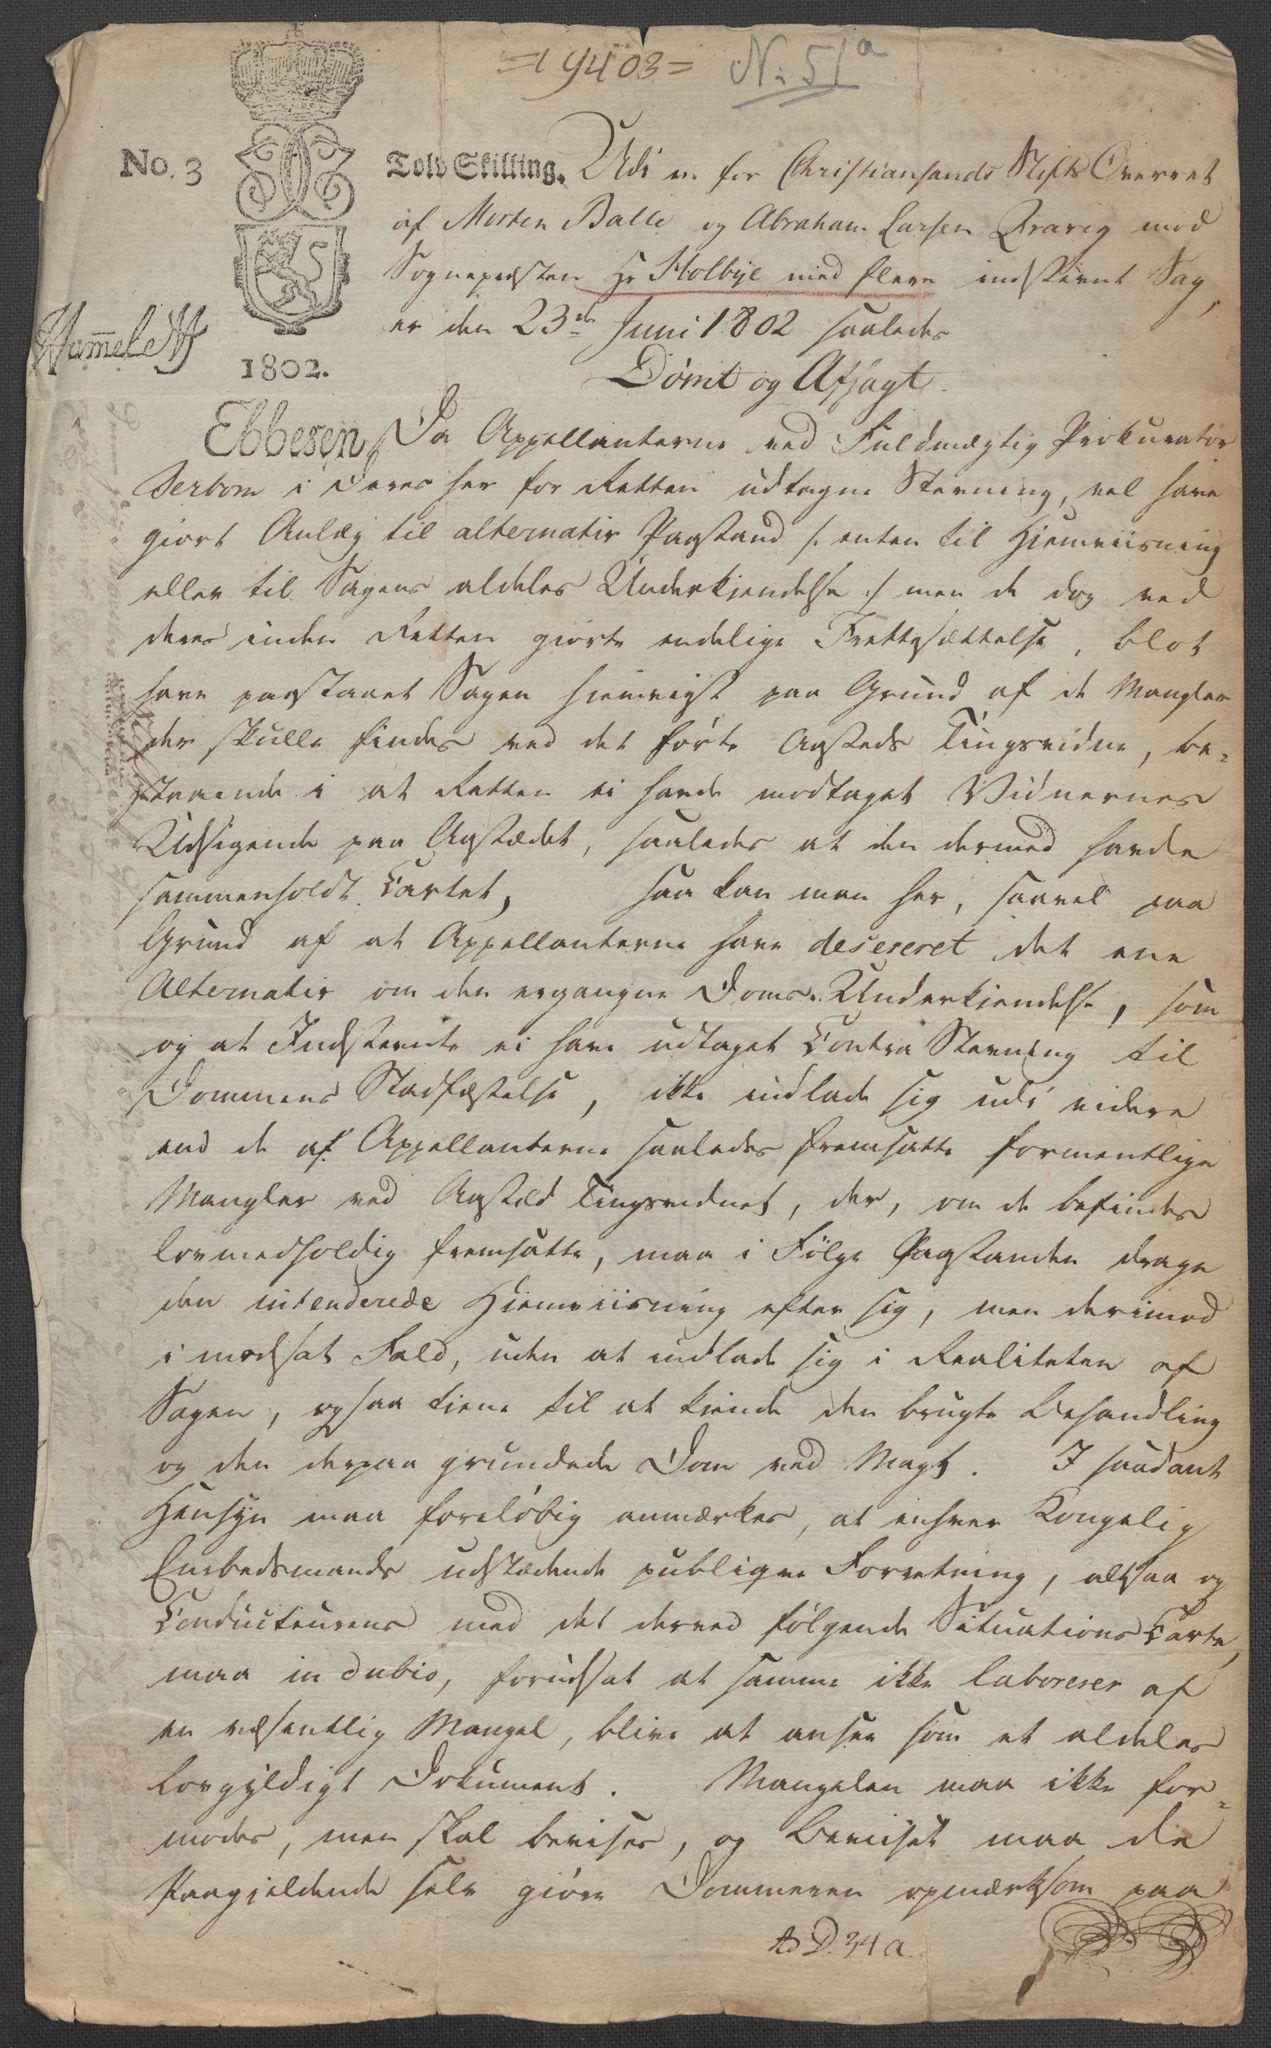 =19403= N: 51a
No. 3
Tolv Skilling. Udi en for Christiansands Stifts Overret
af Morten Balle og Abraham Larsen Qvavig mod
Sognepræsten Hr Stolbye med flere indstevnt Sag,
er den 23de Juni 1802 saaledes
Hammeleff
1802.
Dømt og Afsagt.
Ebbesen
Da Appellanterne ved Fuldmægtig Prokurator
Serbom i deres her for Retten udtagne Stevning, vel have
giort Anlæg til alternativ Paastand /: enten til Hiemviisning
eller til Sagens aldeles Underkiendelse :/ men de dog ved
deres inden Retten giorte endelige Frettesættelse, blot
have paastaaet Sagen hiemvist paa Grund af de Mangler
der skulle findes ved det førte Aasteds Tingsvidne, be-
staaende i at Retten ei havde modtaget Vidnernes
Udsigende paa Aastædet, saaledes at den dermed havde
sammenholdt Cartet, saa kan man her, saavel paa
Grund af at Appellanterne have desereret det ene
Alternativ om den ergangne Doms Underkiendelse, som
og at Indstevnte ei have udtaget Contra Stevning til
Dommens Stadfæstelse, ikke indlade sig udi videre
end de af Appellanterne saaledes fremsatte formentlige
Mangler ved Aasted Tingsvidnet, der, om de befindes
lovmedholdig fremsatte, maa i Følge Paastanden drage
den intenderede Hiemviisning efter sig, men derimod
i modsat Fald, uden at indlade sig i Realiteten af
Sagen, ogsaa tiene til at kiende den brugte Behandling
og den derpaa grundede Dom ved Magt. I saadant
Hensyn maa foreløbig anmærkes, at enhver Kongelig
Embedsmands udstædende publique Forretning, altsaa og
Conducteurens med det derved følgende Situations Carte,
maa in dubio, forudsat at samme ikke laborerer af
en væsentlig Mangel, blive at ansee som et aldeles
Lovgyldigt Dokument. Mangelen maa ikke for-
modes, men skal bevises, og Beviset maa de
Paagjeldende selv giøre Dommeren opmærksom paa
D. 34 a.